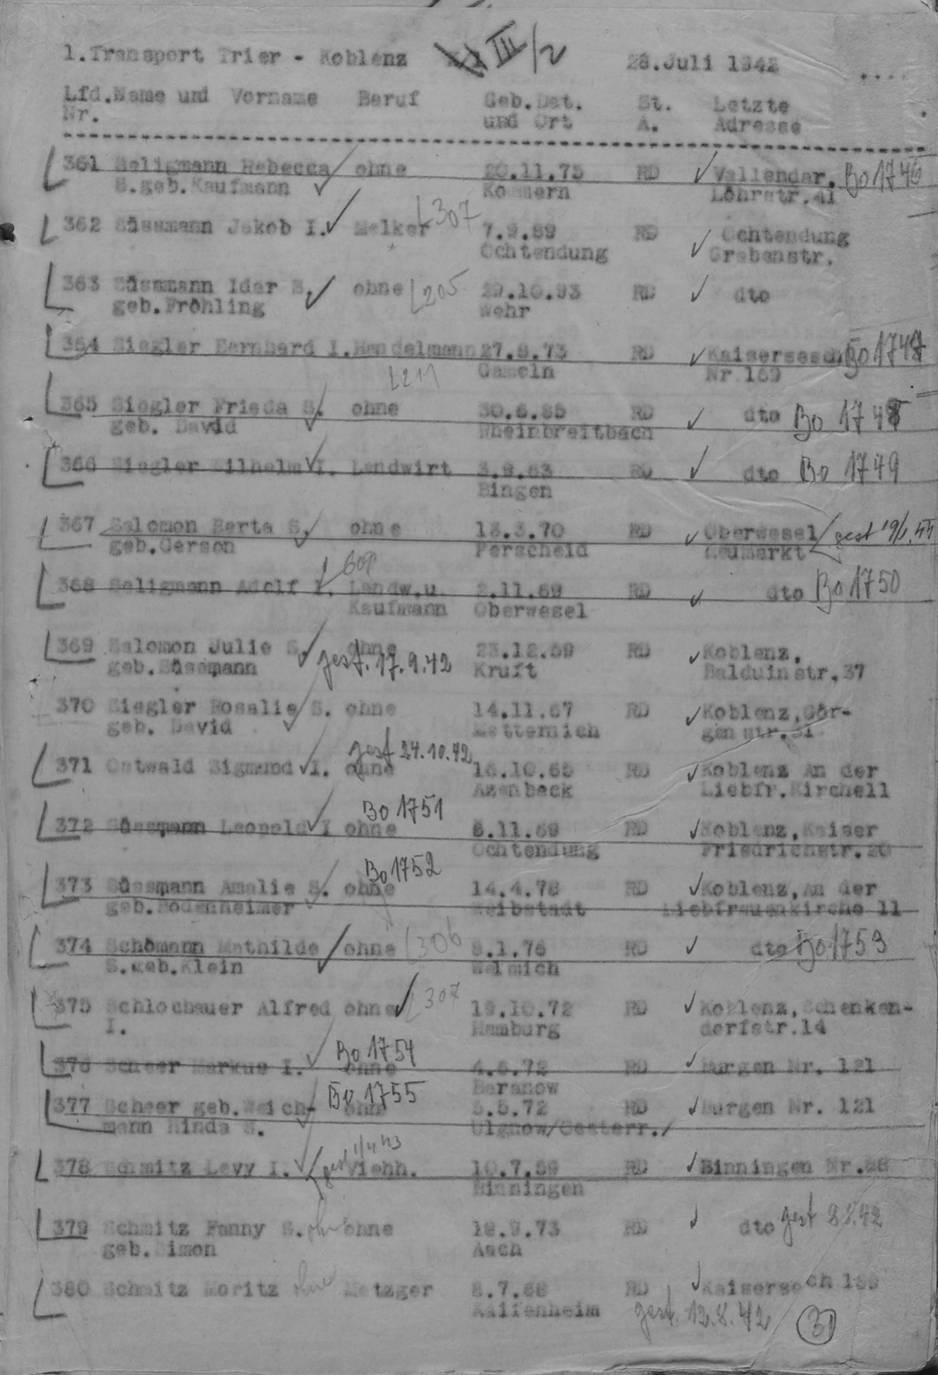 1.Transport Trier - Koblenz III/2 28.Juli 1942
Lfd.Name und Vorname Beruf Geb.Dat. St. Letzte
Nr. und Ort A. Adresse
361 Seligmann Rebecca ohne 20.11.75 RD Vallendar, Bo 1746
S.geb.Kaufmann Kommern Löhrstr.41
362 Süssmann Jakob I. Melker 307 7.9.89 RD Ochtendung
Ochtendung Grabenstr.
363 Süssmann Idar S. ohne 205 29.10.93 RD dto
geb.Fröhling Wehr
364 Siegler Bernhard I.Handelmann 27.8.73 RD Kaisersesch Bo 1747
211 Gameln Nr.169
365 Siegler Frieda S. ohne 30.6.85 RD dto Bo 1748
geb. David Rheinbreitbach
366 Siegler Wilhelm I. Landwirt 3.9.63 RD dto Bo 1749
Bingen
367 Salomon Berta S. ohne 13.3.70 RD Oberwesel gest 19/1.44
geb.Gerson Perscheid Neumarkt
368 Seligmann Adolf I. Landw.u. 2.11.69 RD dto Bo 1750
Kaufmann Oberwesel
369 Salomon Julie S. ohne 23.12.59 RD Koblenz,
geb.Süssmann gest. 17.9.42 Kruft Balduinstr.37
370 Siegler Rosalie S. ohne 14.11.67 RD Koblenz,Gör-
geb. David Metternich genstr.
gest 24.10.42
371 Ostwald Sigmund I. ohne 16.10.65 RD Koblenz An der
Azenbeck Liebfr.Kirche11
Bo 1751
372 Süssmann Leopold I ohne 6.11.69 RD Koblenz,Kaiser
Ochtendung Friedrichstr.20
Bo 1752
373 Süssmann Amalie S. ohne 14.4.78 RD Koblenz,An der
geb.Bodenheimer Neibstadt Liebfrauenkirche 11
374 Schömann Mathilde ohne 306 8.1.76 RD dto Bo 1753
S.geb.Klein Welmich
375 Schlochauer Alfred ohne 307 19.10.72 RD Koblenz,Schenken-
I. Hamburg dorfstr.14
Bo 1754
376 Scheer Markus I. ohne 4.6.72 RD Burgen Nr. 121
Baranow
377 Scheer geb.Weich- Bo 1755 5.5.72 RD Burgen Nr. 121
mann Hinda S. Ulgnow/Oesterr./
378 Schmitz Levy I. Viehh. 10.7.59 RD Binningen Nr.
Binningen
379 Schmitz Fanny S. ohne 18.9.73 RD dto gest
geb.Simon Aach
380 Schmitz Moritz ohne Metzger 8.7.68 RD Kaisersesch
Kaifenheim gest. 12.8.42 31